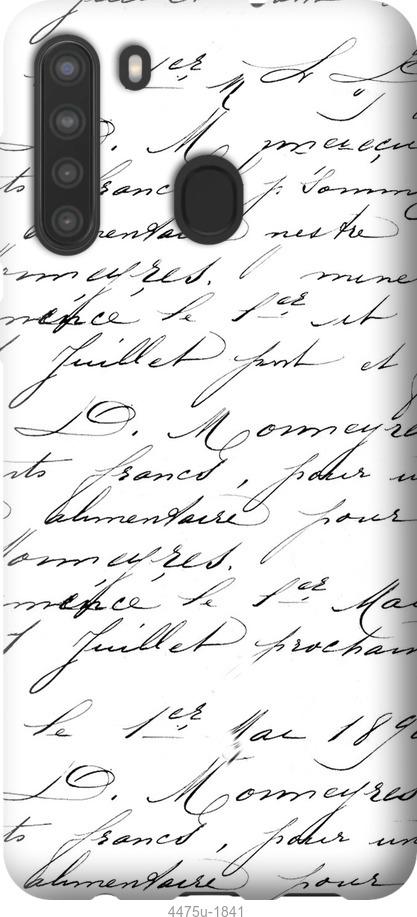 1er
D. M
francs p. Somm
alimentaire nestre
meyres. mine
mence le 1er et
Juillet port et
D. Monneyres
nts francs, pour u
alimentaire pour
onneyres.
mence le 1er Mai
Juillet prochain
le 1er Mai 189
D. Monneyres
ts francs, pour un
alimentaire pour
4475u-1841